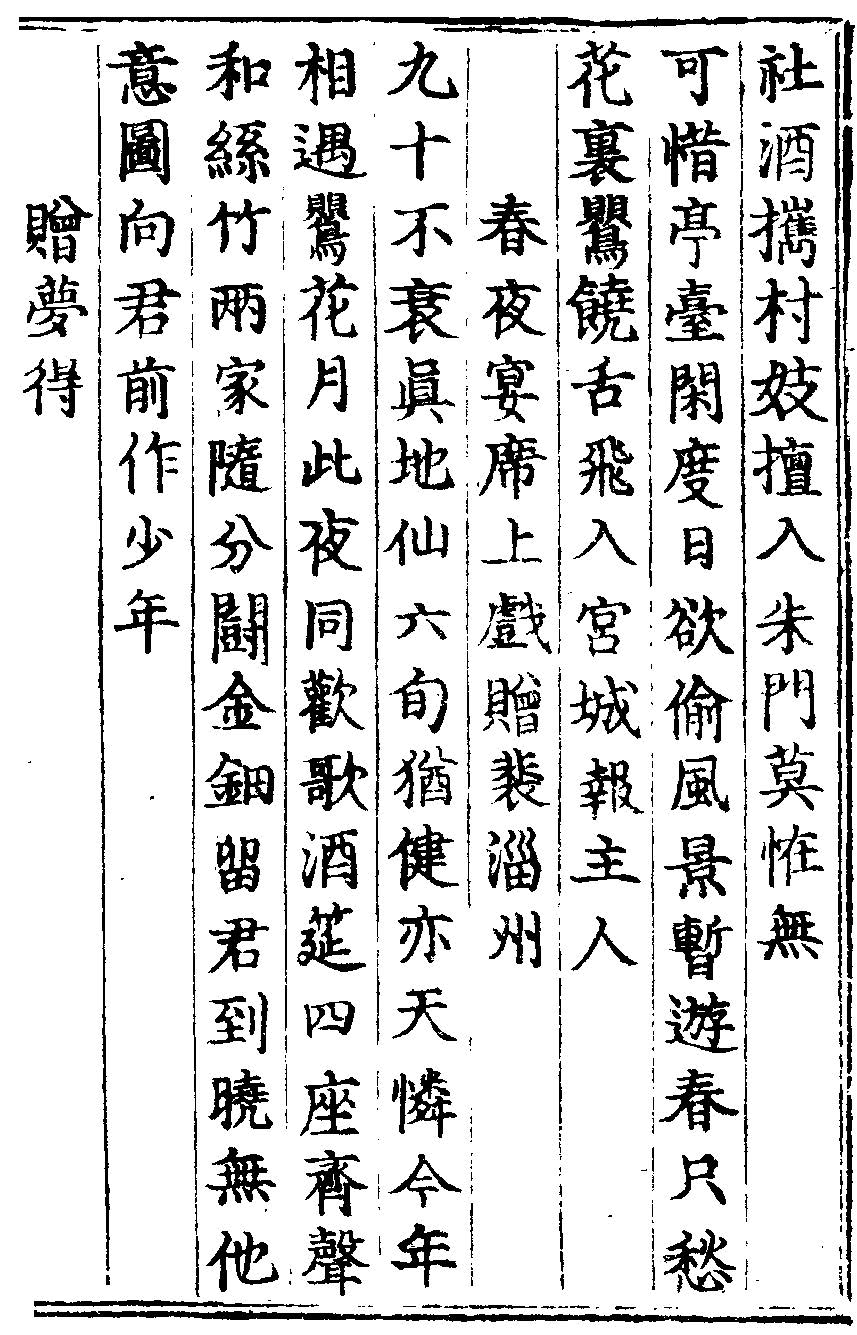 社酒攜村妓擅入朱門莫怪無
可惜亭臺閑度日欲偷風景暫遊春只愁
花裏鸎饒舌飛入宮城報主人
春夜宴席上戲贈裴淄州
九十不衰眞地仙六旬猶健亦天憐今年
相遇鸎花月此夜同歡歌酒筵四座齊聲
和絲竹兩家隨分鬪金鈿留君到曉無他
意圖向君前作少年
贈夢得